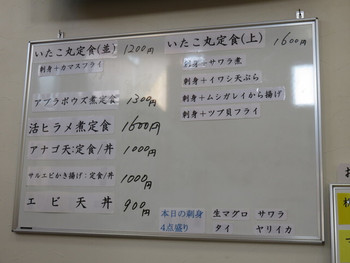 いたこ丸定食(並) 1200円
刺身＋カマスフライ
アブラボウズ煮定食 1300円
活ヒラメ煮定食 1600円
アナゴ天:定食/丼 1000円
サルエビかき揚げ:定食/丼 1000円
エビ天丼 900円
いたこ丸定食(上) 1600円
刺身＋サワラ煮
刺身＋イワシ天ぷら
刺身＋ムシガレイから揚げ
刺身＋ツブ貝フライ
本日の刺身 生マグロ サワラ
4点盛り タイ ヤリイカ